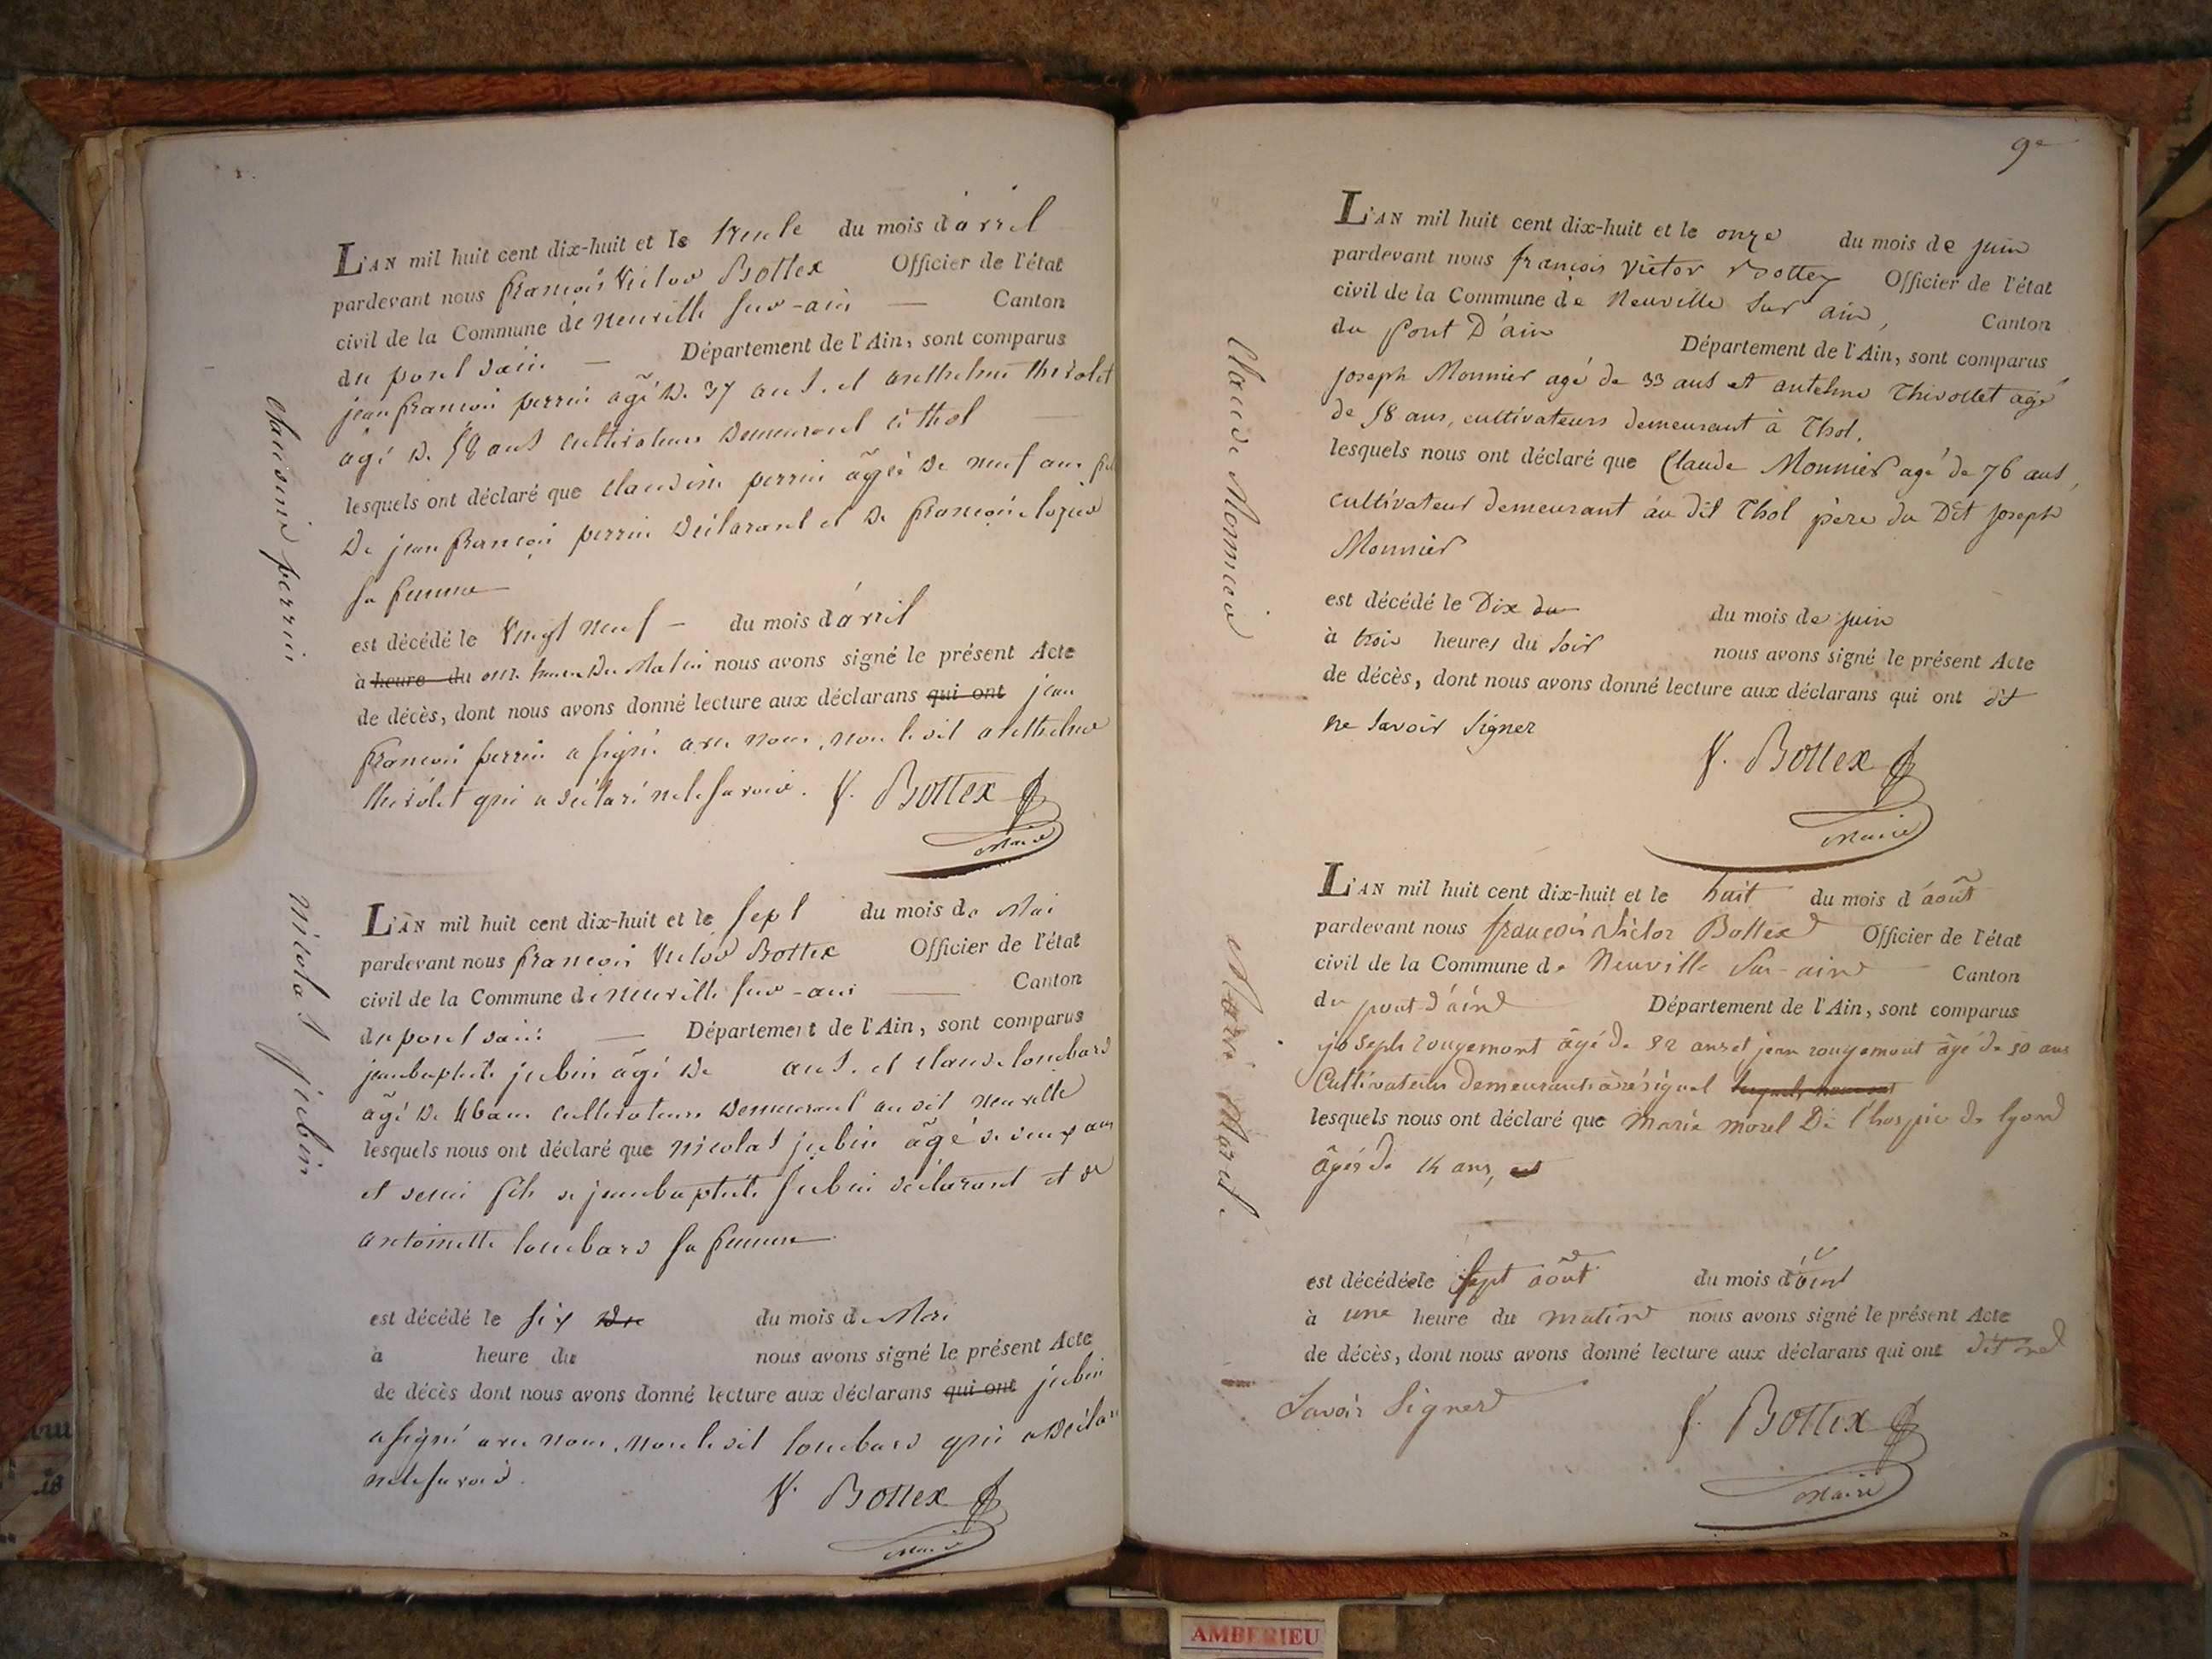 L'AN mil huit cent dix-huit et le trente du mois d'avril
pardevant nous françois Victor Bottex Officier de l'état
civil de la Commune de neuville sur-ain Canton
du pont dain Département de l'Ain, sont comparus
jean françois perrin agé de 37 ans. et anthelme thivolet
agé de 58 ans cultivateurs demeurant à thol
lesquels ont déclaré que claudine perrin âgée de neuf ans
de jean françois perrin déclarant et de françoise
sa femme
est décédé le vingt neuf du mois d'avril
à heure du onze heures du matin nous avons signé le présent Acte
de décès, dont nous avons donné lecture aux déclarans qui ont jean
françois perrin a signé avec nous, non le dit anthelme
thivolet qui a déclaré ne le savoir. V. Bottex
Maire
claudine perrin
L'AN mil huit cent dix-huit et le sept du mois de Mai
pardevant nous françois Victor Bottex Officier de l'état
civil de la Commune de neuville sur-ain Canton
du pont dain Département de l'Ain, sont comparus
jean baptiste jubin âgé de ans. et claude lombard
âgé de 46 ans cultivateurs demeurant au dit neuville
lesquels nous ont déclaré que nicolas jubin âgé de deux ans
et demi fils de jean baptiste jubin déclarant et de
antoinette lombard sa femme
est décédé le six du mois de Mai
à heure du nous avons signé le présent Acte
de décès dont nous avons donné lecture aux déclarans qui ont jubin
a signé avec nous, non le dit lombard qui a déclaré
ne le savoir.
V. Bottex
Maire
nicolas jubin
9e
L'AN mil huit cent dix-huit et le onze du mois de juin
pardevant nous françois Victor Bottex Officier de l'état
civil de la Commune de Neuville sur ain, Canton
du Pont D'ain Département de l'Ain, sont comparus
joseph Monnier agé de 33 ans et antelme Thivollet agé
de 58 ans, cultivateurs demeurant à Thol.
lesquels nous ont déclaré que Claude Monnier agé de 76 ans,
cultivateur demeurant au dit Thol père du Dit joseph
Monnier
est décédé le Dix du du mois de juin
à trois heures du soir nous avons signé le présent Acte
de décès, dont nous avons donné lecture aux déclarans qui ont dit
ne savoir signer
V. Bottex
Maire
Claude Monnier
L'AN mil huit cent dix-huit et le huit du mois d'août
pardevant nous françois Victor Bottex Officier de l'état
civil de la Commune de Neuville sur-ain Canton
du pont-d'ain Département de l'Ain, sont comparus
joseph rougemont âgé de 52 ans et jean rougemont âgé de 50 ans
Cultivateurs demeurant à résignel
lesquels nous ont déclaré que Marie morel De l'hospice de lyon
âgée de 14 ans, est
est décédée le sept août du mois d'août
à une heure du matin nous avons signé le présent Acte
de décès, dont nous avons donné lecture aux déclarans qui ont dit ne
savoir signer
V. Bottex
Maire
Marie Morel
AMBERIEU